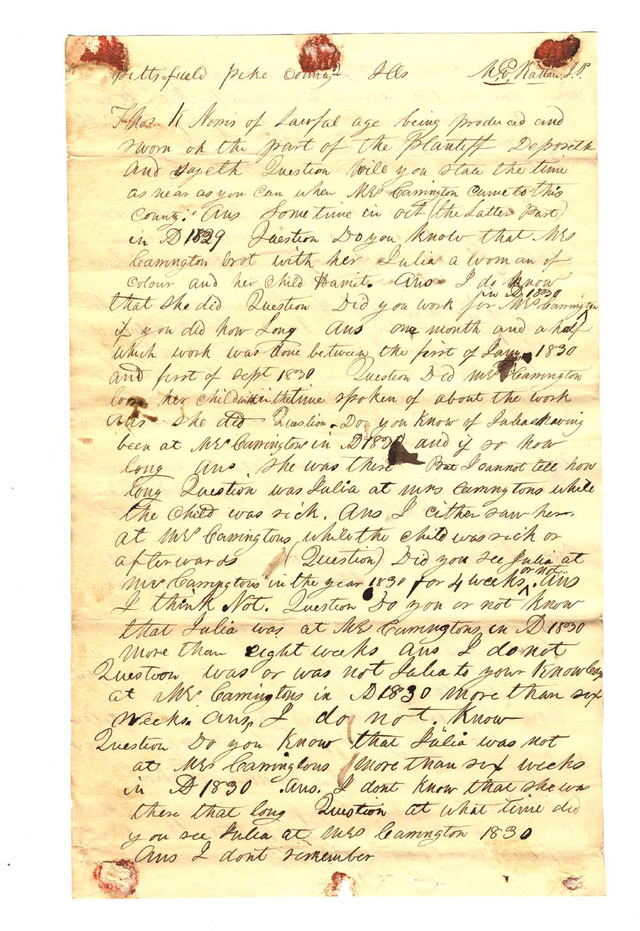 Pittsfield Pike County Ills M. E. Rattan, J.P.
Thos K Norris of Lawful age being produced and
sworn on the part of the Plantiff Deposeth
and sayeth Question Will you state the time
as near as you can when Mrs Carrington came to this
County. Ans Sometime in oct (the Latter Part)
in AD 1829 Question Do you know that Mrs
Carrington brot with her Julia a woman of
colour and her Child Harriet. Ans I do know
that she did Question Did you work for Mrs Carrington in AD 1830
if you did how Long Ans one month and a half
which work was done between the first of Jany 1830
and first of sept 1830 Question Did Mrs Carrington
loose her child within the time spoken of about the work
Ans she did Question. Do you know of Julias having
been at Mrs Carringtons in AD 1830 and if so how
long Ans she was there But I cannot tell how
long Question was Julia at mrs Carringtons while
the child was sick. Ans I either saw her
at Mrs Carringtons while the child was sick or
afterwards (Question) Did you see Julia at
Mrs Carringtons in the year 1830 for 4 weeks or not. Ans
I think Not. Question Do you or not know
that Julia was at Mrs Carringtons in AD 1830
more than eight weeks Ans I do not
Question was or was not Julia to your Knowledg
at Mrs Carringtons in AD 1830 more than six
weeks. ans, I do not. Know
Question Do you Know that Julia was not
at Mrs Carringtons more than six weeks
in AD 1830 . Ans. I dont Know that she was
there that long Question at what time did
you see Julia at Mrs Carrington 1830
Ans I dont remember